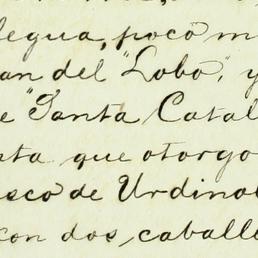 legua, poco m
an del "Lobo", y
e "Santa Catal
sta que otorgo
sco de Urdino
con dos caballe